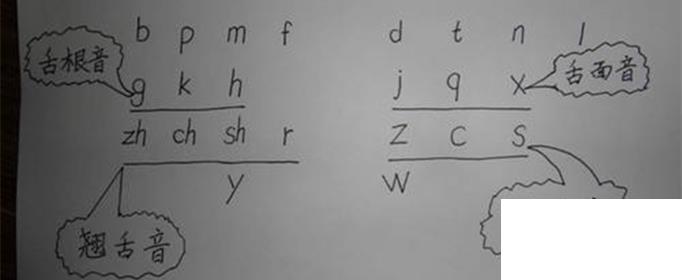 b p m f d t n l
舌根音
g k h j q x
舌面音
zh ch sh r z c s
y w
翘舌音